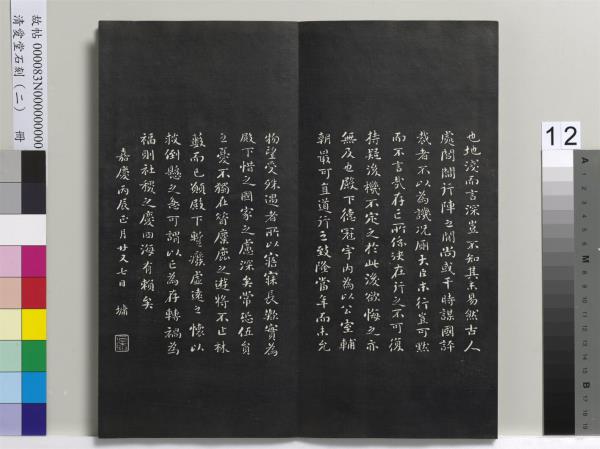 也地淺而言深豈不知其未易然古人
處閭閻行陣之間尚或干時謀國評
裁者不以為譏況廁大臣末行豈可默
而不言哉存亡所係決在行之不可復
持疑後機不定之於此後欲悔之亦
無及也殿下德冠宇內為以公室輔
朝最可直道行之致隆當年而未允
物望受殊遇者所以寤寐長歎實為
殿下惜之國家之慮深矣常恐伍員
之憂不獨在昔麋鹿之遊將不止林
藪而已願殿下暫廢虛遠之懷以
救倒懸之急可謂以亡為存轉禍為
福則社稷之慶四海有賴矣
嘉慶丙辰正月廿又七日 墉
故帖000083N000000000
清愛堂石刻(二) 冊
12
A
M
B